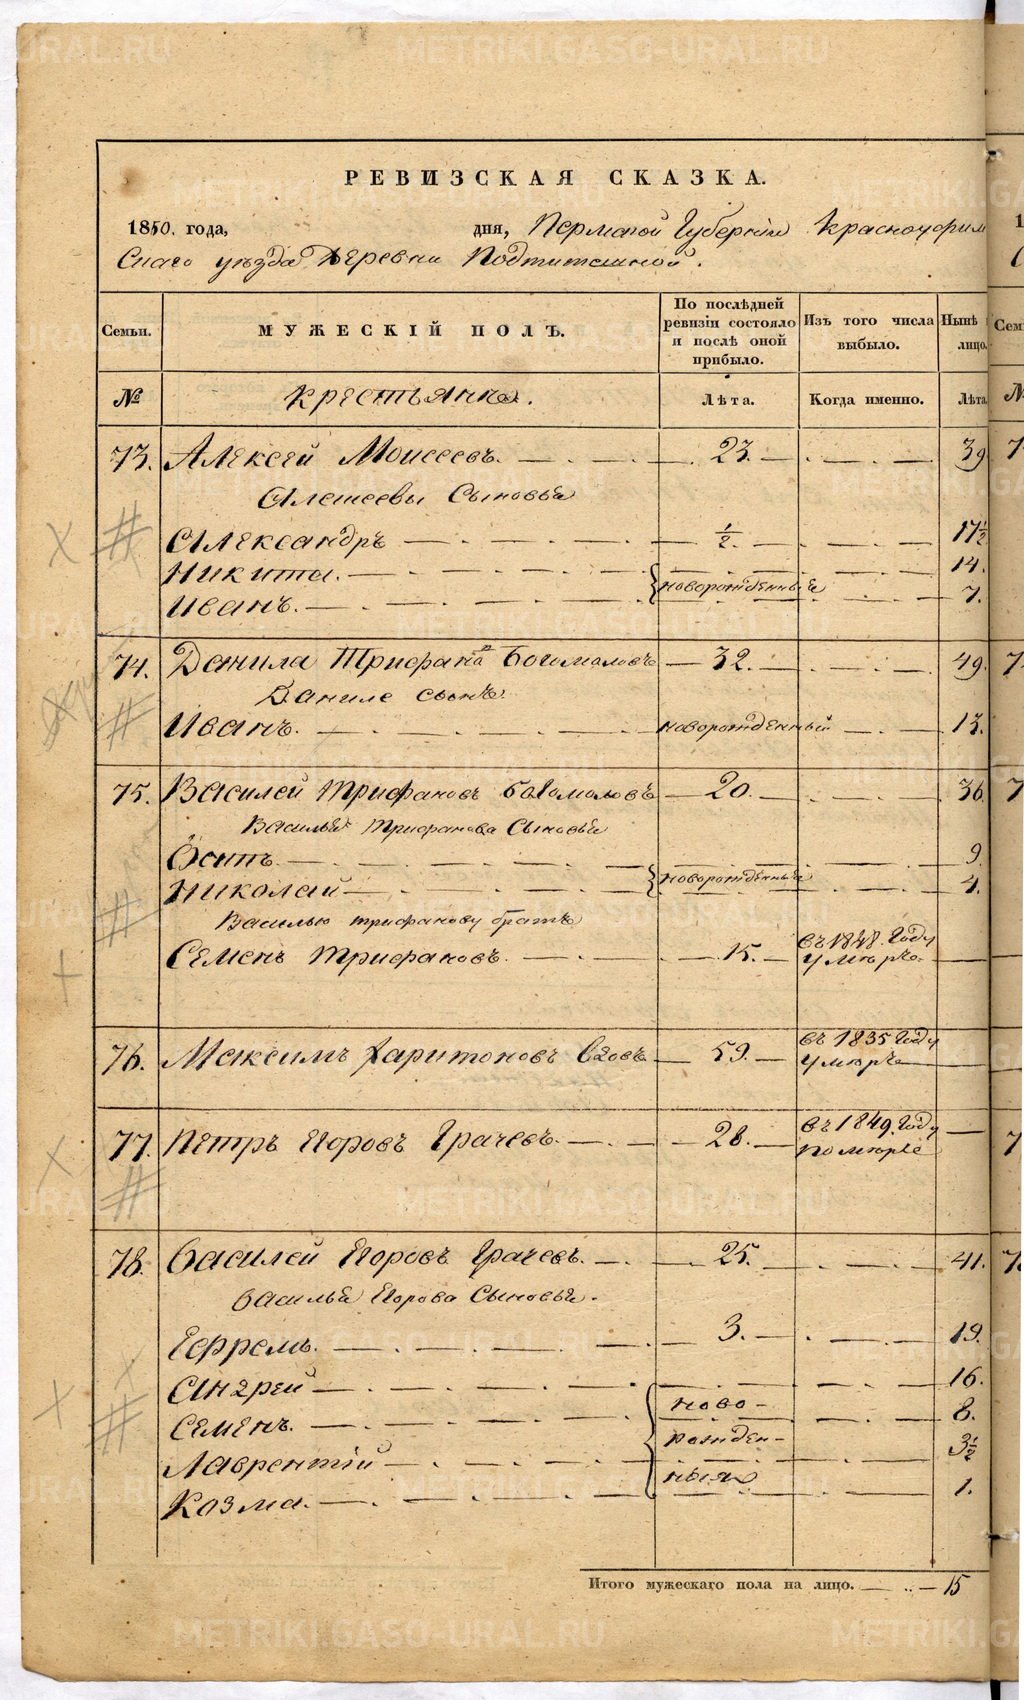 РЕВИЗСКАЯ СКАЗКА.
1850. года, дня, Пермской Губернии Красноуфим
Скаго уѣзда Деревни Подтитешной.
Семьи. МУЖЕСКІЙ ПОЛЪ. По послѣдней ревизіи состояло и послѣ оной прибыло. Изъ того числа выбыло. Нынѣ лицо.
№ Крестьянъ. Лѣта. Когда именно. Лѣта
73. Алексей Моисеевъ. 23. 39
Алексеевы Сыновья
Александръ ½. 17½
Никита. 14.
новорожденныя
Иванъ. 7.
74. Данила Трифановъ Богомоловъ 32. 49.
Даниле сынъ.
Иванъ. новорожденный 13.
75. Василей Трифановъ Богомоловъ 20. 36
Василья Трифанова Сыновья
Осипъ. 9.
новорожденныя
Николай 4.
Василью трифанову братъ
Семенъ Трифановъ. 15. въ 1848. Году умѣръ.
76. Максимъ Харитоновъ 59. въ 1835 Году умѣръ
77. Петръ Егоровъ Грачевъ. 28. въ 1849. Году помѣръ
78. Василей Егоровъ Грачевъ. 25. 41.
Василья Егорова Сыновья.
Ефремъ. 3. 19.
Андрей 16.
Семенъ. ново- 8.
Лаврентій рожден- 3½
Козма. ныя 1.
Итого мужескаго пола на лицо. 15
METRIKI.GASO-URAL.RU